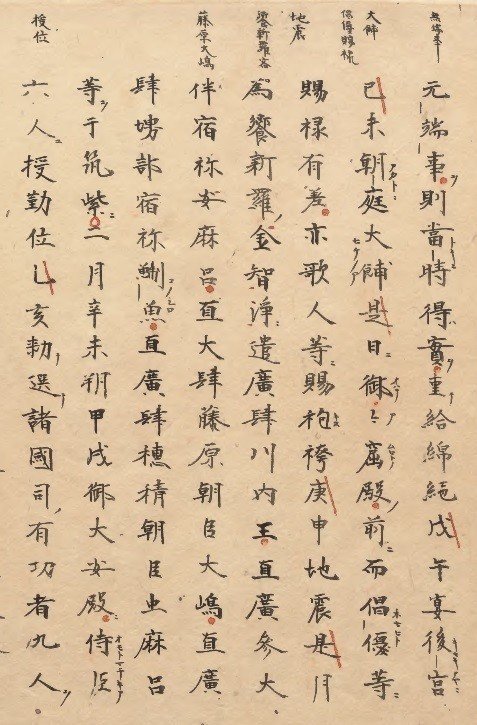 無端事
大餔
倡優賜禄
地震
饗新羅客
藤原大嶋
授位
无端事則當時得實重給綿絁戊午宴後宮
己未朝庭大餔是日御々窟殿前而倡優等
賜禄有差亦歌人等賜袍袴庚申地震是月
為饗新羅金智淨遣廣肆川内王直廣參大
伴宿祢安麻呂直大肆藤原朝臣大嶋直廣
肆堺部宿祢鯯魚直廣肆穗積朝臣虫麻呂
等于筑紫二月辛未朔甲戌御大安殿侍臣
六人授勤位乙亥勅選諸國司有功者九人